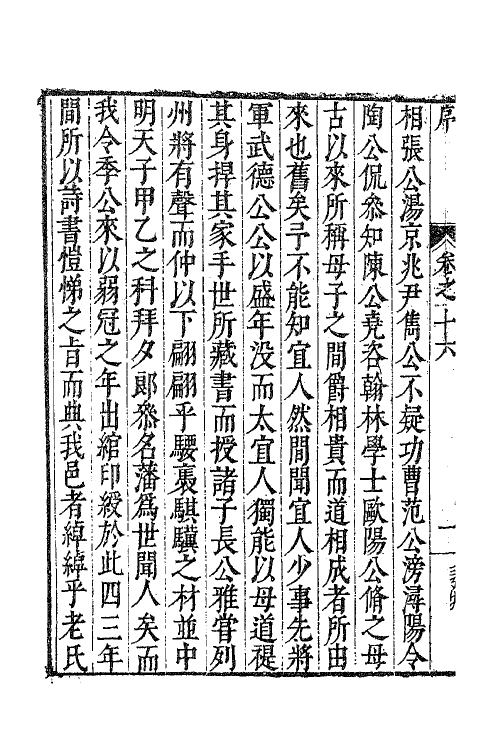 序 卷之十六 一
相張公湯京兆尹雋公不疑功曹范公滂潯陽令
陶公侃叅知陳公堯咨翰林學士歐陽公脩之母
古以來所稱母子之間爵相貴而道相成者所由
來也舊矣予不能知宜人然間聞宜人少事先將
軍武德公公以盛年没而太宜人獨能以母道禔
其身捍其家手世所藏書而授諸子長公雅嘗列
州將有聲而仲以下翩翩乎騕褭騏驥之材並中
明天子甲乙之科拜夕郞叅名藩爲世聞人矣而
我令季公來以弱冠之年出綰印綬於此四三年
間所以詩書愷悌之㫖而與我邑者綽綽乎老氏